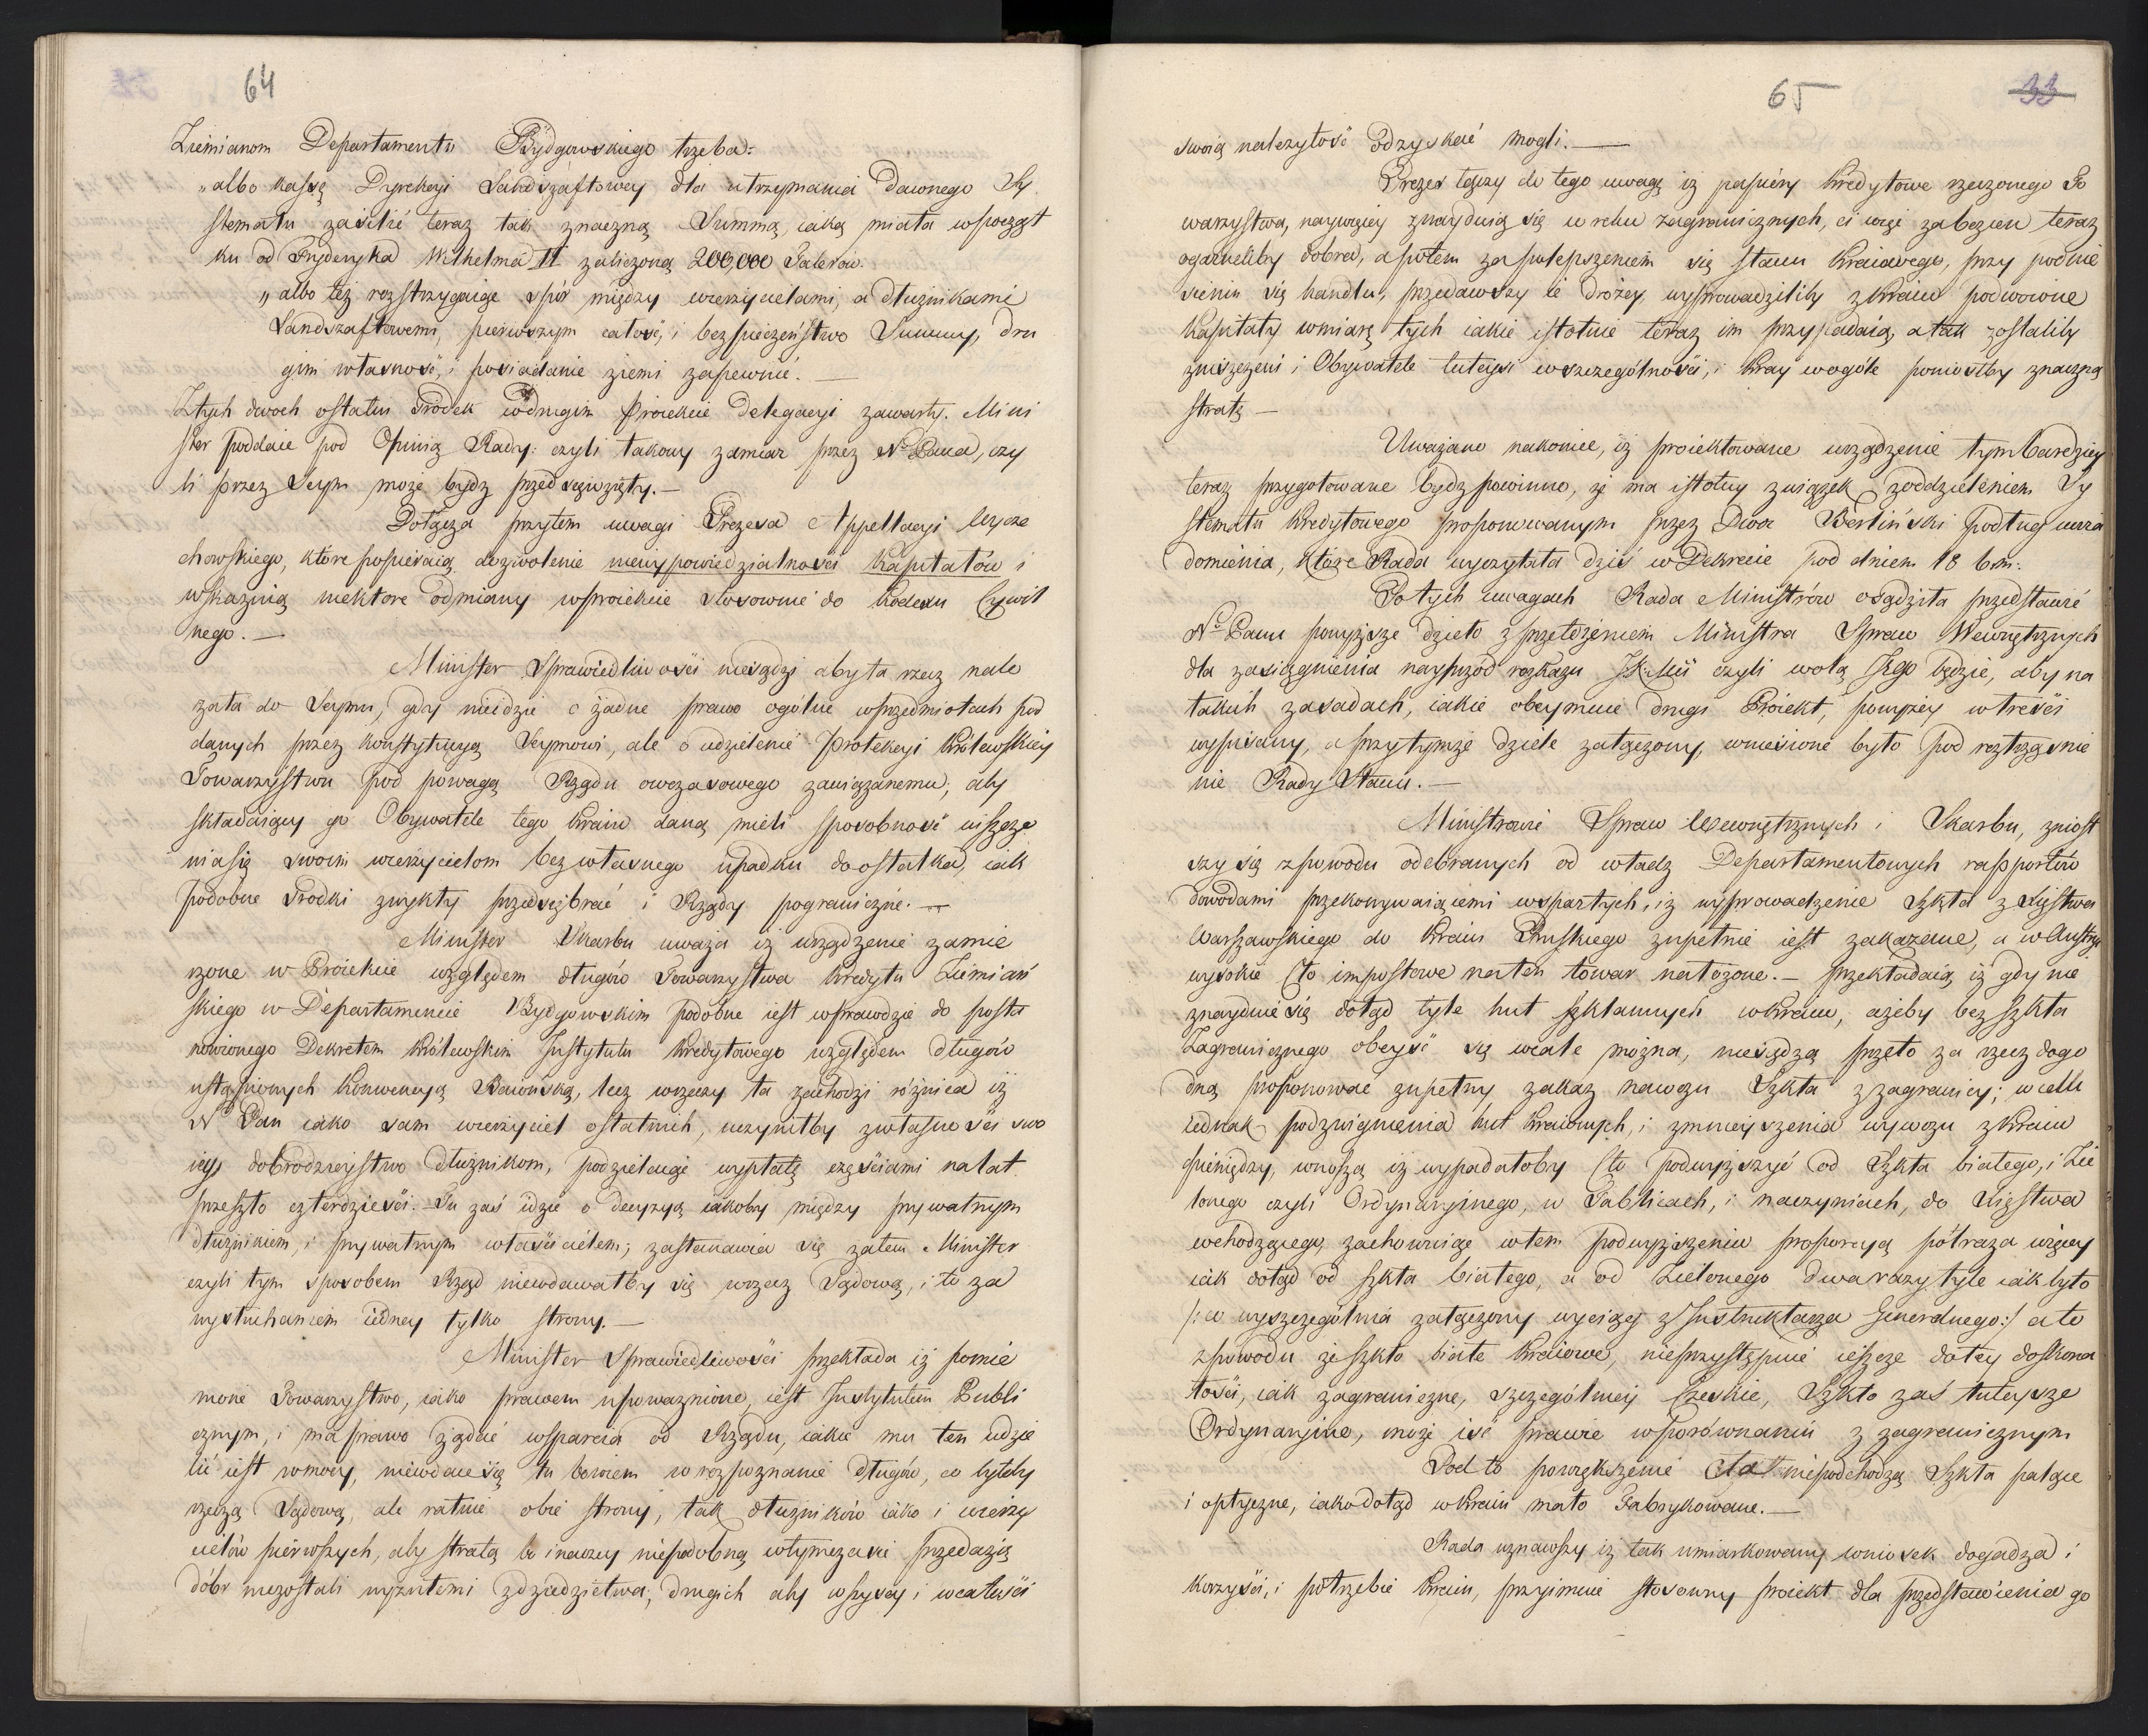 64
Ziemianom Departamentu Bydgowskiego trzeba:
„albo kassę Dyrekcyi Landszaftowey dla utrzymania dawnego Sy
stematu zasilić teraz tak znaczną Summą, iaką miała wpocząt
ku od Fryderyka Wilhelma II zaliczoną 200,000 Talerów.
„albo też rozstrzygaiąc spór między wierzycielami, a dłużnikami
Landszaftowemi, pierwszym całość, i bezpieczeństwo Summy, dru
gim własność, i posiadanie ziemi zapewnić. —
Ztych dwoch ostatni srodek wdrugim Proiekcie Delegacyi zawarty. Mini
ster poddaie pod Opinią Rady: czyli takowy zamiar przez N. Pana, czy
li przez Seym może bydz przedsięwzięty. —
Dołącza przytem uwagi Prezesa Appellacyi Wycze
chowskiego, które popieraią dozwolenie niewypowiedzialności Kapitałów i
wskazuią niektore odmiany wproiekcie stosownie do Kodexu Cywil
nego. —
Minister Sprawiedliwości niesądzi aby ta rzecz nale
żała do Seymu, gdy nieidzie o żadne prawo ogólne wprzedmiotach pod
danych przez konstytucyą Seymowi, ale o udzielenie Protekcyi Królewskiey
Towarzystwu pod powagą Rządu owczasowego zawiązanemu, aby
składaiący go Obywatele tego kraiu daną mieli sposobność uiszcze
niasię swoim wierzycielom bez własnego upadku do ostatka, iak
podobne srodki zwykły przedsiębrać i Rządy pograniczne. —
Minister Skarbu uważa iż urządzenie zamie
rzone w Proiekcie względem długów Towarzystwa kredytu Ziemiań
skiego w Departamencie Bydgowskim podobne iest wprawdzie do posta
nowionego Dekretem Królewskim Instytutu kredytowego względem długów
ustąpionych Konwencyą Baiońską, lecz wrzeczy ta zachodzi różnica iż
N. Pan iako sam wierzyciel ostatnich, uczyniłby zwłasności swo
iey dobrodzieystwo dłużnikom, podzielaiąc wypłatę częściami na lat
przeszło czterdzieści. — Tu zaś idzie o decyzyą iakoby między prywatnym
dłużnikiem, i prywatnym właścicielem; zastanawia się zatem Minister
czyli tym sposobem Rząd niewdawałby się wrzecz Sądową, i to za
wysłuchaniem iedney tylko strony. —
Minister Sprawiedliwości przekłada iż pomie
nione Towarzystwo, iako prawem upoważnione, iest Instytutem Publi
cznym, i ma prawo żądać wsparcia od Rządu, iakie mu ten udzie
lić iest w mocy, niewdaie się tu bowiem w rozpoznanie długów, co byłoby
rzeczą Sądową, ale ratuie obie strony, tak dłużników iako i wierzy
cielów pierwszych, aby stratą bo inaczey niepodobną wtymczasie przedażą
dóbr niezostali wyzutemi zdziedzictwa; drugich aby wszyscy i wcałości
65
33
swoią należytość odzyskać mogli. —
Prezes łączy do tego uwagę iż papiery kredytowe rzeczonego To
warzystwa, naywięcy znayduią się w ręku zagranicznych, ci więc za bezcen teraz
ogarnęliby dobra, a potem za polepszeniem się stanu kraiowego, przy podnie
sieniu się handlu, przedawszy ie drożey, wyprowadziliby z kraiu podwoione
Kapitały wmiarę tych iakie istotnie teraz im przypadaią, a tak zostaliby
zniszczeni i Obywatele tuteysi w szczególności, i Kray wogóle poniosłby znaczną
stratę —
Uważano nakoniec, iż proiektowane urządzenie tymbardziey
teraz przygotowane bydz powinno, że ma istotny związek zoddzieleniem Sy
stematu kredytowego proponowanym przez Dwór Berliński podług uwia
domienia, które Rada wyczytała dziś w Dekrecie pod dniem 18 b.m.
Po tych uwagach Rada Ministrów osądziła przedstawić
N. Panu powyższe dzieło z przełożeniem Ministra Spraw Wewnętrznych
dla zasiągnienia nayprzód rozkazu JK.Mci czyli wolą Jego będzie, aby na
takich zasadach, iakie obeymuie drugi Proiekt, powyżey wtreści
wypisany, a przytymże dziele załączony, wniesione było pod roztrząsnie
nie Rady Stanu. —
Ministrowie Spraw Wewnętrznych i Skarbu, zniósł
szy się zpowodu odebranych od władz Departamentowych rapportów
dowodami przekonywaiącemi wspartych, iż wyprowadzenie Szkła z Xięstwa
Warszawskiego do kraiu Pruskiego zupełnie iest zakazane, a w Austryi
wysokie Cło impostowe na ten towar nałożone. — przekładaią iż gdy nie
znayduie się dotąd tyle hut szklannych wkraiu, ażeby bez szkła
Zagranicznego obeyść się wcale można, niesądzą przeto za rzecz dogo
dną proponować zupełny zakaz nawozu Szkła z zagranicy; w celu
iednak podzwignienia hut kraiowych, i zmnieyszenia wywozu z kraiu
pieniędzy, wnoszą iż wypadałoby Cło podwyższyć od Szkła białego, i Zie
lonego czyli Ordynaryinego, w Tablicach, i naczyniach, do Xięstwa
wchodzącego, zachowuiąc wtem podwyższeniu proporcyą półraza więcey
iak dotąd od szkła białego, a od Zielonego dwa razy tyle iak było
/: co wyszczególnia załączony wyciąg z Instruktarza Generalnego :/ a to
zpowodu że szkło białe kraiowe, nieprzystępuie ieszcze do tey doskona
łości, iak zagraniczne, szczególniey Czeskie, Szkło zaś tuteysze
Ordynaryine, może iść prawie wporównaniu z zagranicznym
Pod to powiększenie Cła niepodchodzą Szkła palące
i optyczne, iako dotąd wkraiu mało Fabrykowane. —
Rada uznawszy iż tak umiarkowany wniosek dogadza i
korzyści, i potrzebie kraiu, przyimuie stosowny proiekt dla przedstawienia go